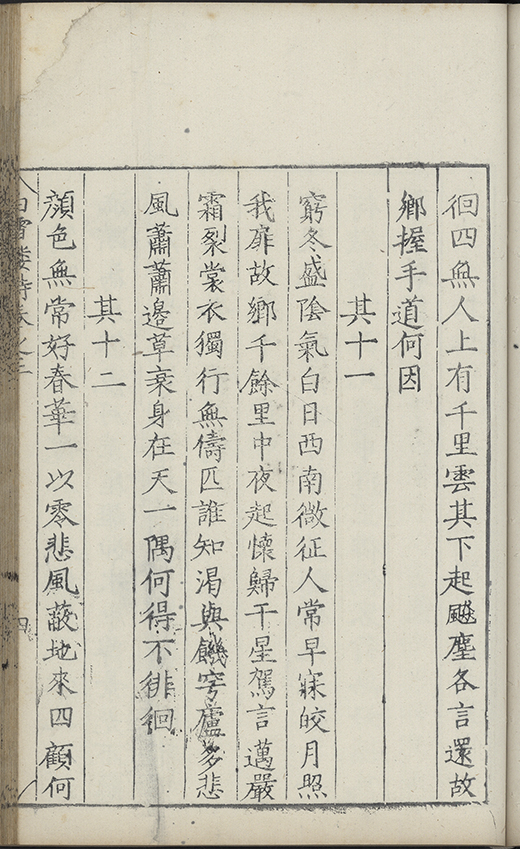 徊四無人上有千里雲其下起飈塵各言還故
鄉握手道何因
其十一
窮冬盛陰氣白日西南微征人常早寐皎月照
我扉故鄉千餘里中夜起懷歸干星駕言邁嚴
霜裂裳衣獨行無儔匹誰知渴與饑穹廬多悲
風蕭蕭邊草衰身在天一隅何得不徘徊
其十二
顏色無常好春華一以零悲風蔽地來四顧何
白雪樓詩卷之
四